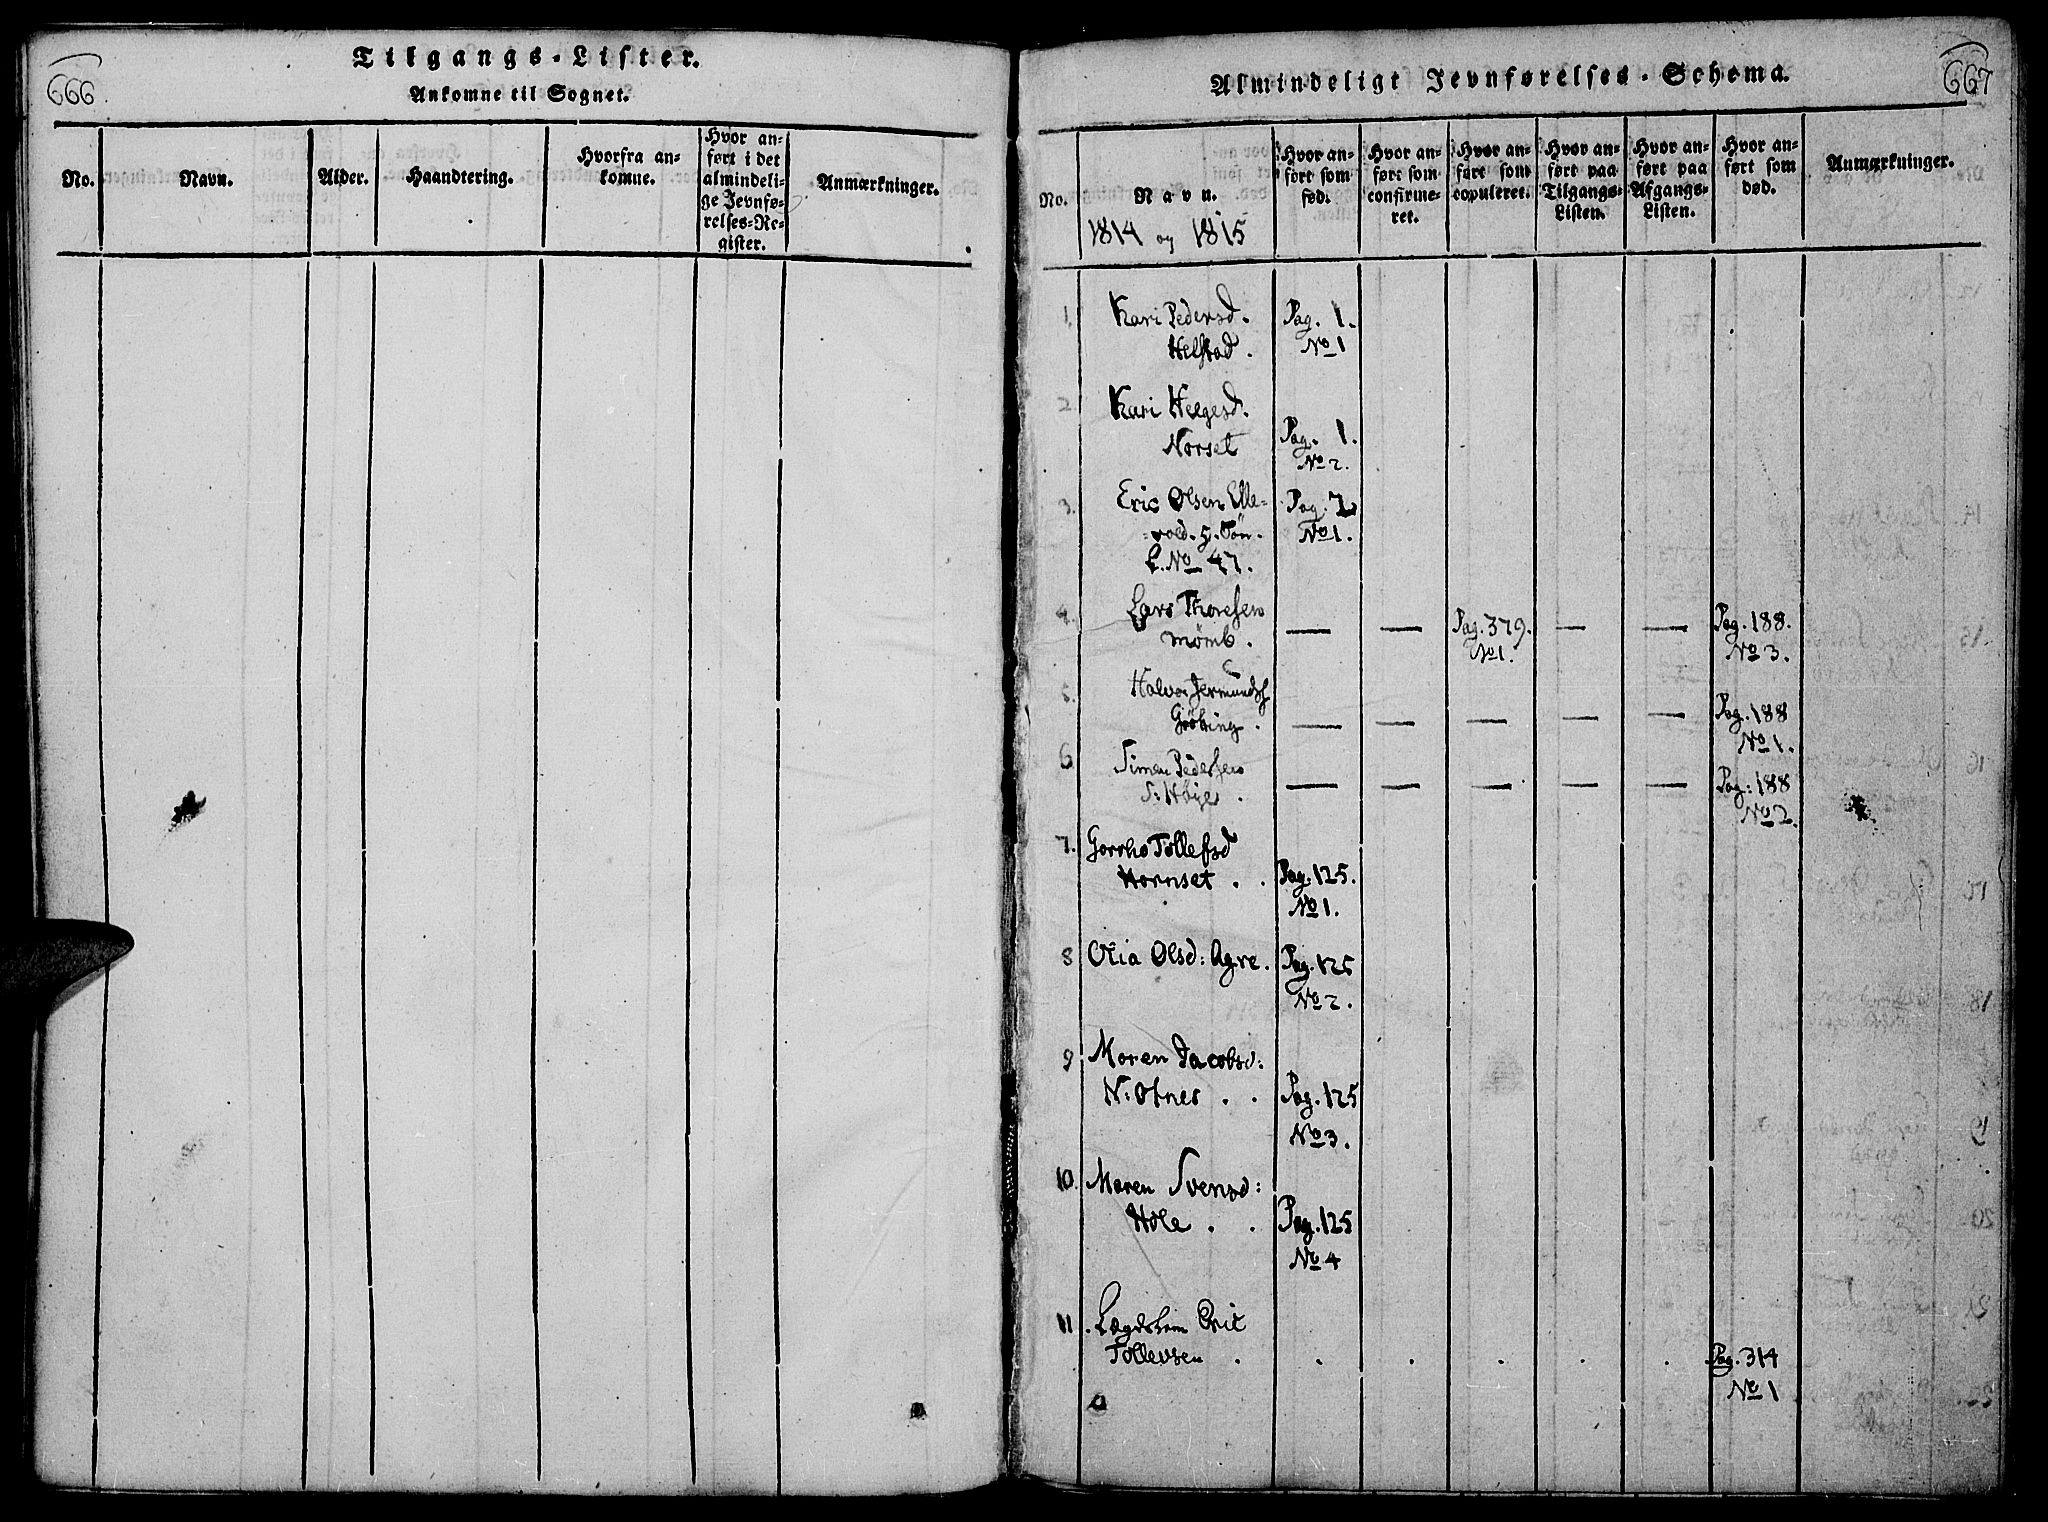 666
Tilgangs-Lister.
Ankomne til Sognet.
No.
Navn.
Alder.
Haandtering.
Hvorfra an-
komne.
Hvor an-
ført i det
almindeli-
ge Jevnfø-
relses-Re-
gister.
Anmærkninger.
667
Almindeligt Jevnførelses-Schema.
No.
Navn.
1814 og 1815
Hvor an-
ført som
fød.
Hvor an-
ført som
confirme-
ret.
Hvor an-
ført som
copuleret.
Hvor an-
ført paa
Tilgangs-
Listen.
Hvor an-
ført paa
Afgangs-
Listen.
Hvor an-
ført som
død.
Anmærkninger.
1. Kari Pedersd. Pag. 1.
Helstad. No 1
2 Kari Helgesd.
Norset Pag. 1.
No 2.
3. Eric Olsen Elle- Pag. 2
-vold. No 1.
L. No 47.
4. Lars Thoresen — — Pag. 379. — — Pag. 188.
No 1. No 3.
5. Halvor
— — — — — Pag. 188
No 1.
6 Simen Pedersen
— — — — — Pag: 188
No 2.
7. Tollefsd
Hornset . . Pag. 125.
No 1.
8 Olia Olsd: Agre. Pag. 125
No 2.
9 Maren Jacobsd:
N: Otnes . . Pag. 125
No 3.
10. Maren Svensd:
Hole . . Pag. 125
No 4
11. Lægdslem Eric
Tollevsen . . . . . . Pag. 314
No 1